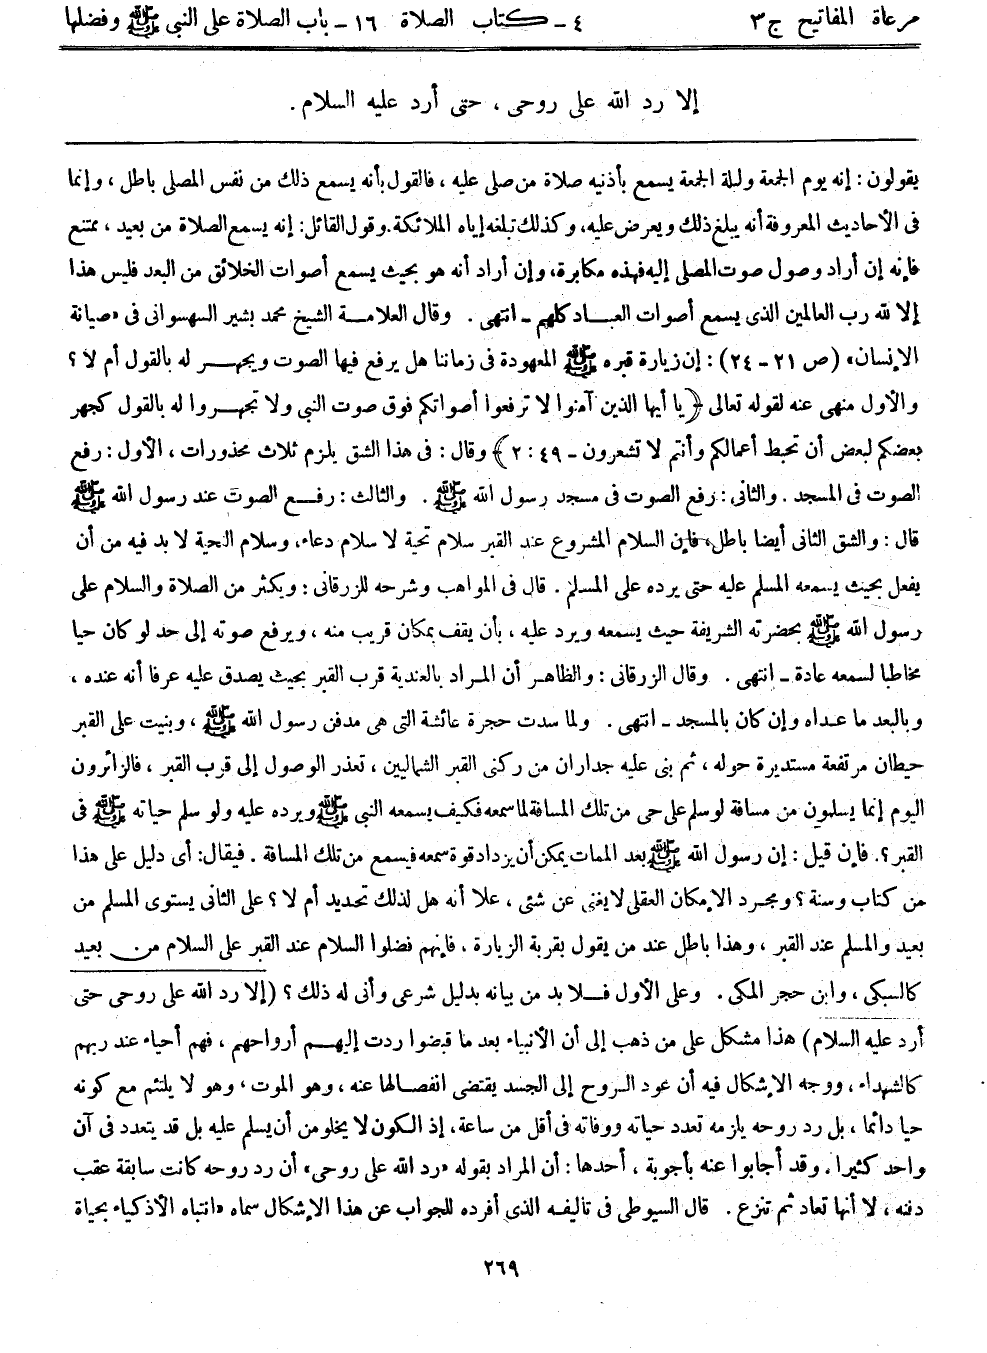 مرعاة المفاتيح ج٣ ٤ ـ كتاب الصلاة ١٦ ـ باب الصلاة على النبي ﷺ وفضلها
إلا رد الله على روحى ، حتى أرد عليه السلام .
يقولون : إنه يوم الجمعة وليلة الجمعة يسمع بأذنيه صلاة من صلى عليه ، فالقول بأنه يسمع ذلك من نفس المصلى باطل ، وإنما
فى الأحاديث المعروفة أنه يبلغ ذلك ويعرض عليه، وكذلك تبلغه إياه الملائكة. وقول القائل: إنه يسمع الصلاة من بعيد ، ممتنع
فإنه إن أراد وصول صوت المصلى إليه فهذه مكابرة، وإن أراد أنه هو بحيث يسمع أصوات الخلائق من البعد فليس هذا
إلا لله رب العالمين الذى يسمع أصوات العباد كلهم ـ انتهى . وقال العلامة الشيخ محمد بشير السهسوانى فى «صيانة
الإنسان» (ص ٢١ - ٢٤) : إن زيارة قبره ﷺ المعهودة فى زماننا هل يرفع فيها الصوت ويجهر له بالقول أم لا ؟
والأول منهى عنه لقوله تعالى ﴿يا أيها الذين آمنوا لا ترفعوا أصواتكم فوق صوت النبى ولا تجهروا له بالقول كجهر
بعضكم لبعض أن تحبط أعمالكم وأنتم لا تشعرون - ٤٩ : ٢﴾ وقال : فى هذا الشق يلزم ثلاث محذورات ، الأول : رفع
الصوت فى المسجد . والثانى : رفع الصوت فى مسجد رسول الله ﷺ . والثالث : رفع الصوت عند رسول الله ﷺ
قال : والشق الثانى أيضا باطل، فإن السلام المشروع عند القبر سلام تحية لا سلام دعاء، وسلام التحية لا بد فيه من أن
يفعل بحيث يسمعه المسلم عليه حتى يرده على المسلم . قال فى المواهب وشرحه للزرقانى : ويكثر من الصلاة والسلام على
رسول الله ﷺ بحضرته الشريفة حيث يسمعه ويرد عليه ، بأن يقف بمكان قريب منه ، ويرفع صوته إلى حد لو كان حيا
مخاطبا لسمعه عادة ـ انتهى . وقال الزرقانى : والظاهر أن المراد بالعندية قرب القبر بحيث يصدق عليه عرفا أنه عنده ،
وبالبعد ما عداه وإن كان بالمسجد ـ انتهى . ولما سدت حجرة عائشة التى هى مدفن رسول الله ﷺ ، وبنيت على القبر
حيطان مرتفعة مستديرة حوله ، ثم بنى عليه جداران من ركنى القبر الشماليين ، تعذر الوصول إلى قرب القبر ، فالزائرون
اليوم إنما يسلمون من مسافة لو سلم على حى من تلك المسافة لما سمعه فكيف يسمعه النبى ﷺ ويرده عليه ولو سلم حياته ﷺ فى
القبر ؟. فإن قيل : إن رسول الله ﷺ بعد الممات يمكن أن يزداد قوة سمعه فيسمع من تلك المسافة . فيقال: أى دليل على هذا
من كتاب وسنة ؟ ومجرد الإمكان العقلى لا يغنى عن شئى ، علا أنه هل لذلك تحديد أم لا ؟ على الثانى يستوى المسلم من
بعيد والمسلم عند القبر ، وهذا باطل عند من يقول بقربة الزيارة ، فإنهم فضلوا السلام عند القبر على السلام من بعيد
كالسبكى ، وابن حجر المكى . وعلى الأول فلا بد من بيانه بدليل شرعى وأنى له ذلك ؟ (إلا رد الله على روحى حتى
أرد عليه السلام) هذا مشكل على من ذهب إلى أن الأنبياء بعد ما قبضوا ردت إليهم أرواحهم ، فهم أحياء عند ربهم
كالشهداء ، ووجه الإشكال فيه أن عود الروح إلى الجسد يقتضى انفصالها عنه ، وهو الموت ، وهو لا يلتئم مع كونه
حيا دائما ، بل رد روحه يلزمه تعدد حياته ووفاته فى أقل من ساعة، إذ الكون لا يخلو من أن يسلم عليه بل قد يتعدد فى آن
واحد كثيرا . وقد أجابوا عنه بأجوبة ، أحدها : أن المراد بقوله «رد الله على روحى» أن رد روحه كانت سابقة عقب
دفنه ، لا أنها تعاد ثم تنزع . قال السيوطى فى تاليفه الذى أفرده للجواب عن هذا الإشكال سماه «انتباه الأذكياء بحياة
٢٦٩